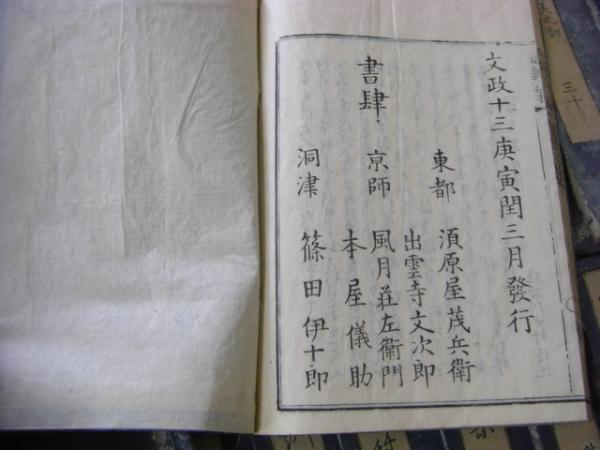 文政十三庚寅閏三月發行
書肆
東都 須原屋茂兵衛
京師 出雲寺文次郎
風月莊左衞門
本屋儀助
洞津 篠田伊十郎
三十